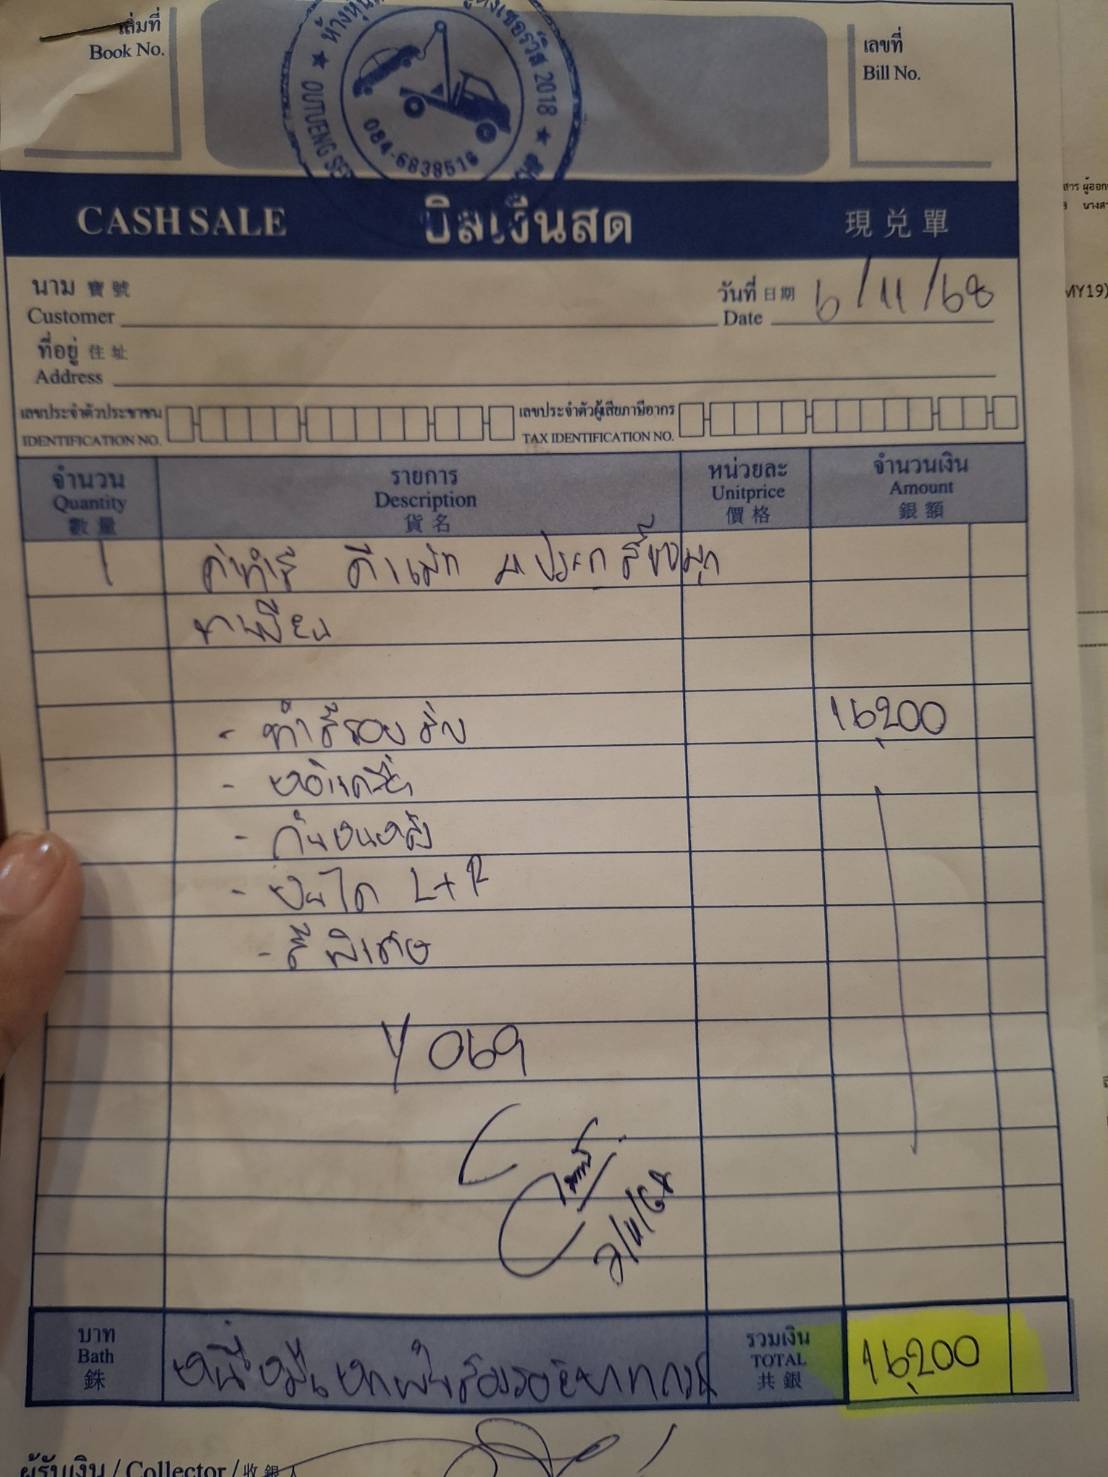 เล่มที่
Book No.
ห้างหุ้น
เซอร์วิส 2018
OUTUENG SE
084-6838516
เลขที่
Bill No.
CASH SALE บิลเงินสด 現兑單
นาม 寶號
Customer
วันที่ 日期 6/11/68
Date
ที่อยู่ 住址
Address
เลขประจำตัวประชาชน เลขประจำตัวผู้เสียภาษีอากร
IDENTIFICATION NO. TAX IDENTIFICATION NO.
จำนวน รายการ หน่วยละ จำนวนเงิน
Quantity Description Unitprice Amount
數量 貨名 價格 銀額
1 ค่าทำสี
ทะเบียน
- ทำสีรอบคัน 16,200
- 
- กันชนหลัง
- บันได L+R
- สีพิเศษ
Y 069
/11/68
บาท รวมเงิน
Bath หนึ่งหมื่นหกพันสองร้อยบาทถ้วน TOTAL 16,200
銖 共銀
ผู้รับเงิน / Collector / 收銀人